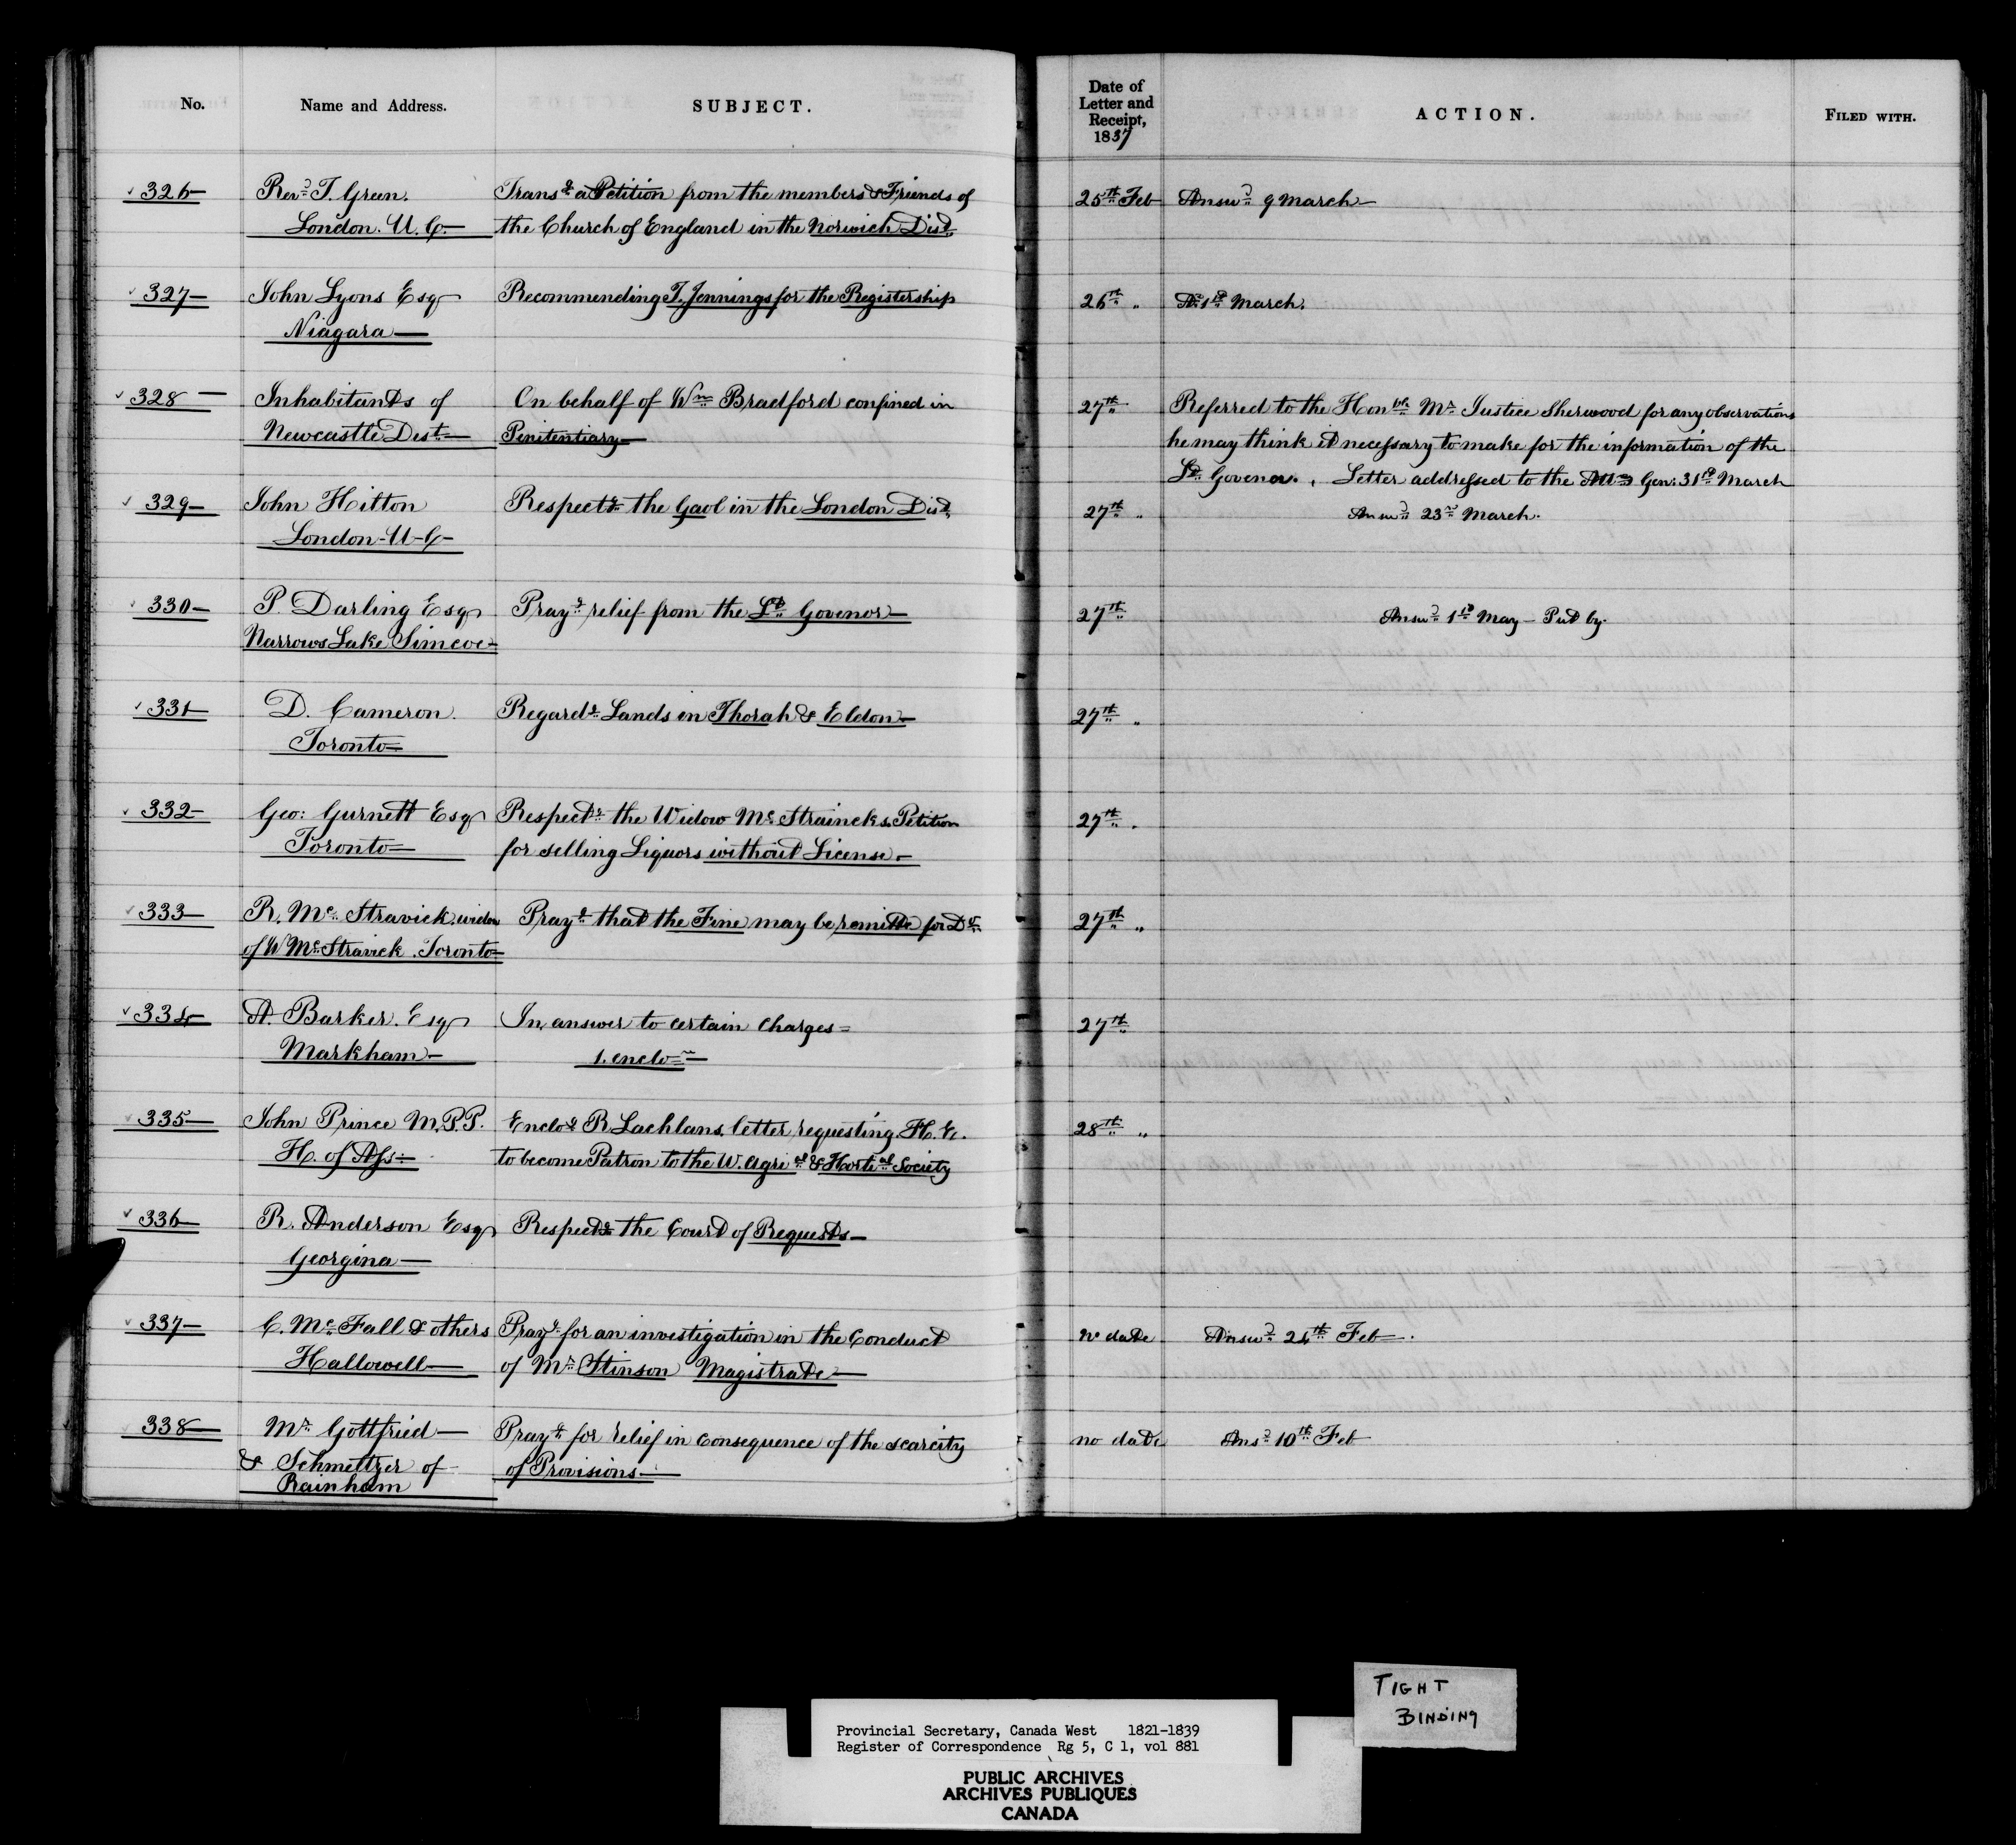 No.
Name and Address.
SUBJECT.
Date of
Letter and
Receipt,
1837
ACTION.
FILED WITH.
326—
Revd T. Green.
London. U. C.—
Transg a Petition from the members & Friends of
the Church of England in the Norwich Dist
25th Feb
Answd 9 March—
327—
John Lyons Esq
Niagara—
Recommending T. Jennings for the Registership
26th „
A. 1st March.
328—
Inhabitants of
Newcastle Dist—
On behalf of Wm Bradford confined in
Penitentiary—
27th
Referred to the Honble Mr Justice Sherwood for any observations
he may think it necessary to make for the information of the
Lt Govenor. Letter addressed to the Atto Gen: 31st March
329—
John Hitton
London-U-C-
Respectg the Gaol in the London Dist
27th „
Answd 23rd March.
330—
P. Darling Esq
Narrows Lake Simcoe—
Prayg relief from the Lt Govenor—
27th
Answd 1st May— Put by.
331—
D. Cameron.
Toronto—
Regardg Lands in Thorah & Eldon—
27th „
332—
Geo: Gurnett Esq
Toronto—
Respectg the Widow Mc Straincks Petition
for selling Liquors without License.—
27th „
333—
R. Mc Stravick. widow
of W Mc Stravick. Toronto—
Prayg that the Fine may be remitte for Do
27th „
334—
A. Barker. Esq
Markham—
In answer to certain Charges—
1. enclo—
27th
335—
John Prince M.P.P.
H. of Ass—
Enclog R Lachlans letter requesting H. E.
to become Patron to the W. Agrial & Hortial Society
28th „
336—
R. Anderson Esq
Georgina—
Respectg the Court of Requests—
337—
C. Mc Fall & others
Hallowell—
Prayg for an investigation in the Conduct
of Mr Stinson Magistrate—
no date
Answd 24th Feb—.
338—
Mr Gottfried—
& Schmeltzer of
Rainham
Prayg for relief in consequence of the scarcity
of Provisions—
no date
Ansd 10th Feb
TIGHT
BINDING
Provincial Secretary, Canada West 1821-1839
Register of Correspondence Rg 5, C 1, vol 881
PUBLIC ARCHIVES
ARCHIVES PUBLIQUES
CANADA